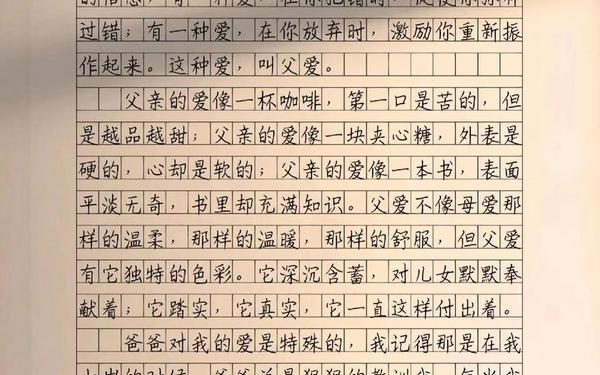 过错；有一种爱，在你放弃时，激励你重新振
作起来。这种爱，叫父爱。
父亲的爱像一杯咖啡，第一口是苦的，但
是越品越甜；父亲的爱像一块夹心糖，外表是
硬的，心却是软的；父亲的爱像一本书，表面
平淡无奇，书里却充满知识。父爱不像母爱那
样的温柔，那样的温暖，那样的舒服，但父爱
有它独特的色彩。它深沉含蓄，对儿女默默奉
献着；它踏实，它真实，它一直这样付出着。
爸爸对我的爱是特殊的，我记得那是在我